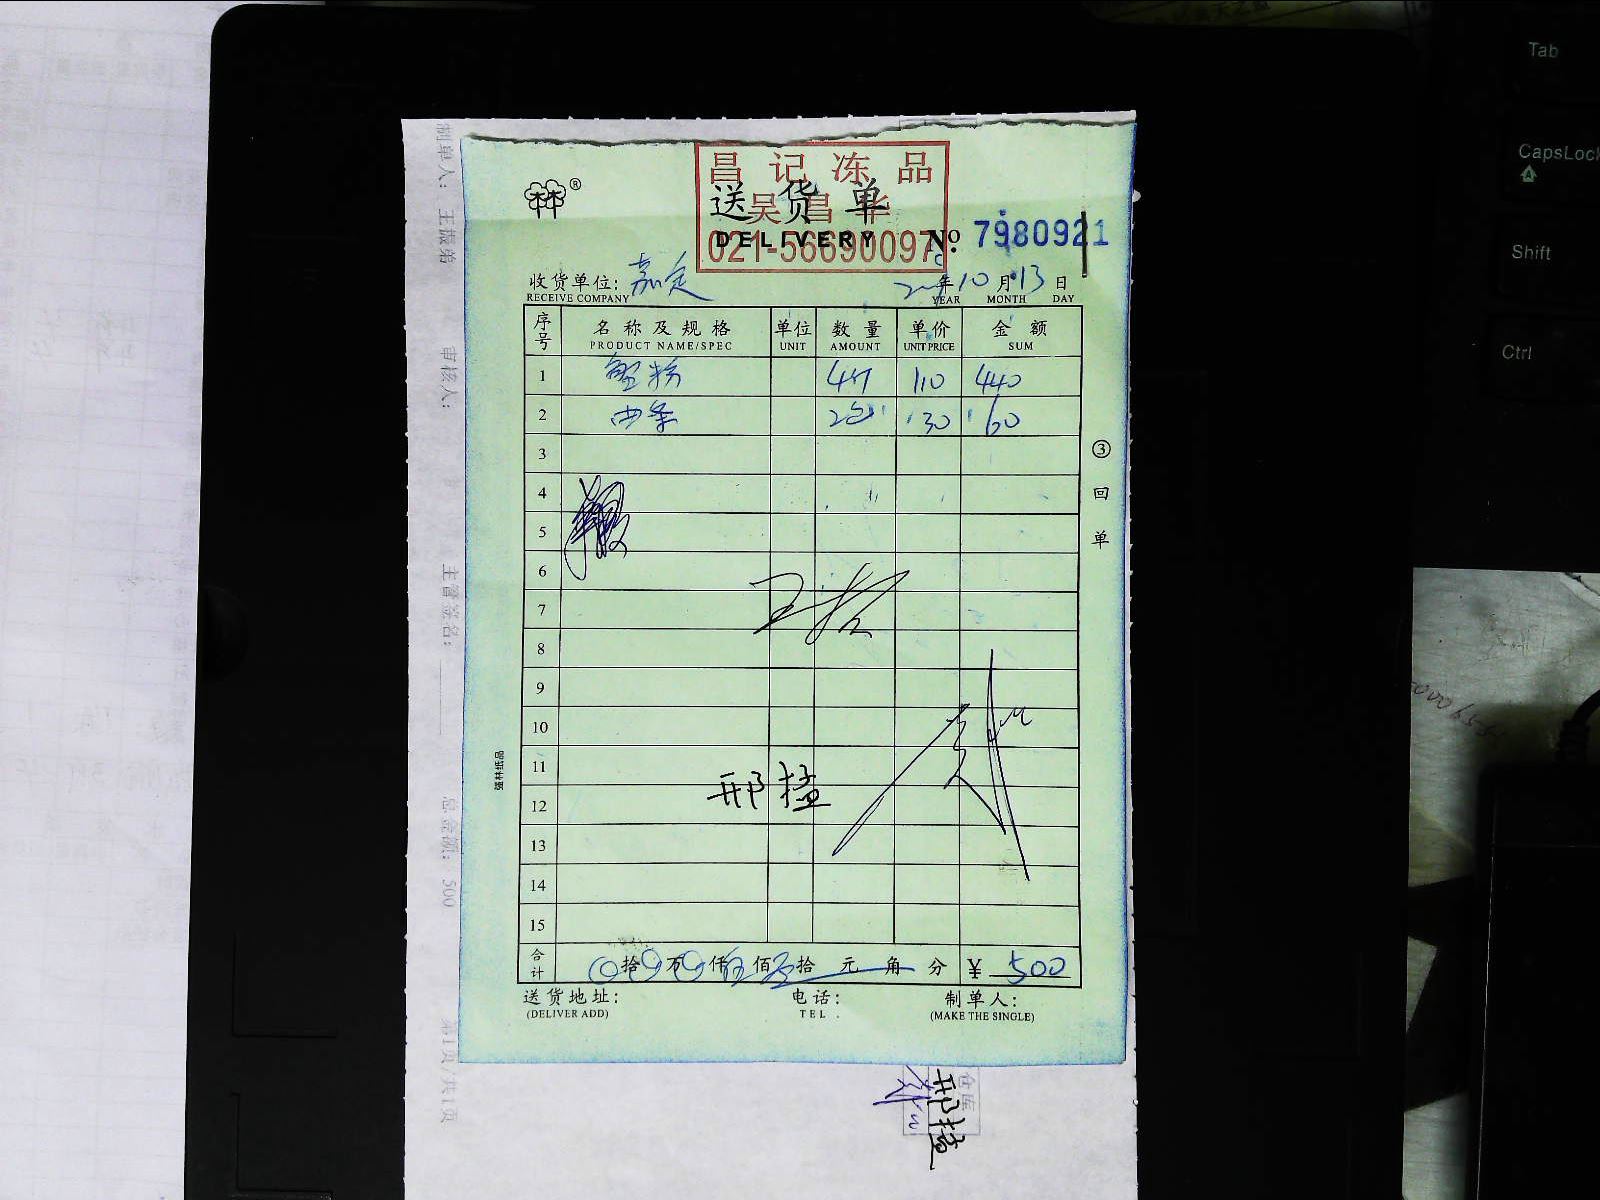 昌记冻品
吴昌华
021-56690097
林林®
送货单
DELIVERY
No. 7980921
收货单位: 嘉定
RECEIVE COMPANY
年 10 月 13 日
YEAR MONTH DAY
序号 名称及规格 单位 数量 单价 金额
PRODUCT NAME/SPEC UNIT AMOUNT UNIT PRICE SUM
1 蟹粉 4斤 110 440
2 2包 30 60
3
4
5
6
7
8
9
10
11
12 邢猛
13
14
15
合计 拾 万 仟 伍佰 拾 元 角 分 ¥ 500
送货地址: 电话: 制单人:
(DELIVER ADD) TEL. (MAKE THE SINGLE)
③回单
强林纸品
制单人: 王振弟
审核人:
主管签名:
总金额: 500
第1页/共1页
仓库
邢猛
Tab
CapsLock
Shift
Ctrl